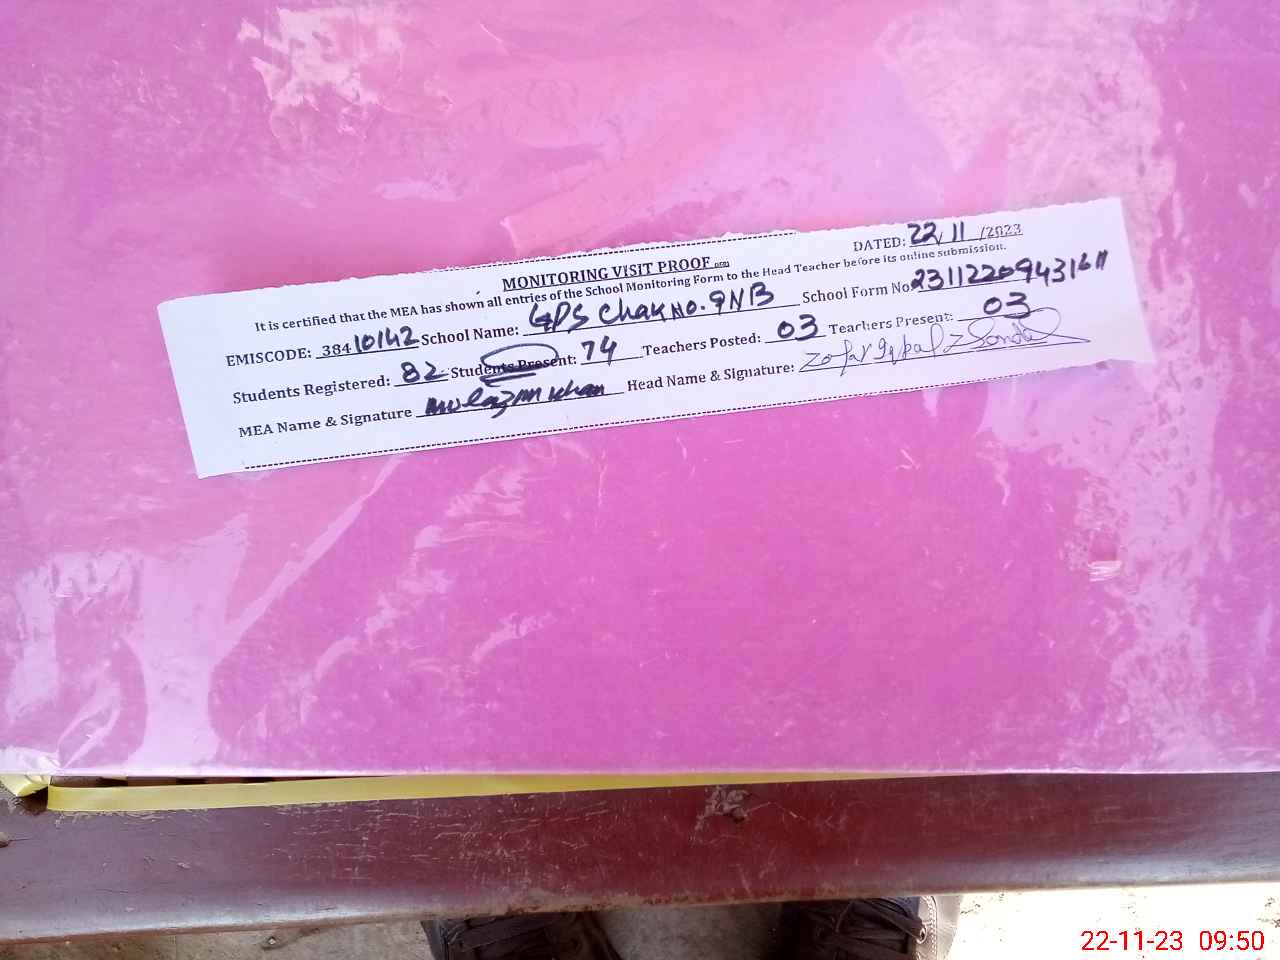 MONITORING VISIT PROOF
DATED: 22/11/2023
It is certified that the MEA has shown all entries of the School Monitoring Form to the Head Teacher before its online submission.
EMISCODE: 38410142 School Name: GPS Chak No. 9NB School Form No
Students Registered: 82 Students Present: 74 Teachers Posted: 03 Teachers Present: 03
MEA Name & Signature Mulazim Khan Head Name & Signature: Zafar Iqbal
22-11-23 09:50